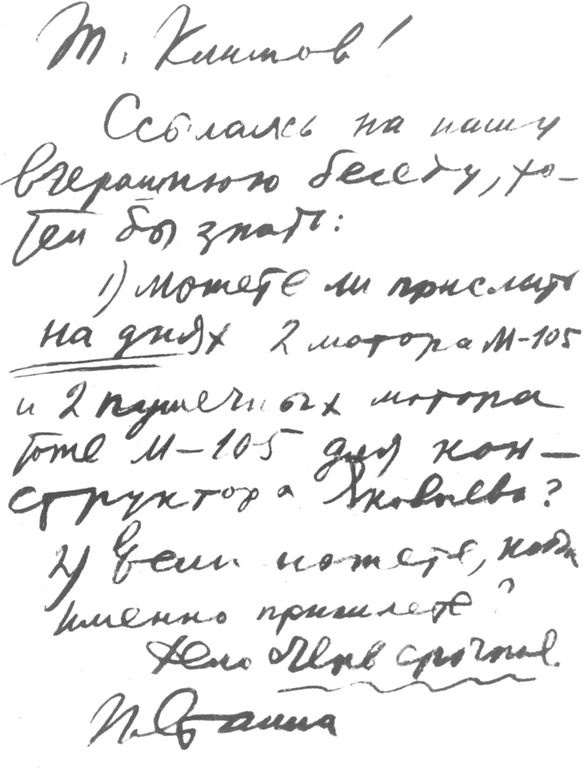 Т. Климов!
Ссылаясь на нашу
вчерашнюю беседу, хо-
тел бы знать:
1) можете ли прислать
на днях 2 мотора М-105
и 2 пушечных мотора
тоже М-105 для кон-
структора Яковлева?
2) если можете, когда
именно пришлете?
Дело очень срочное.
И. Сталин